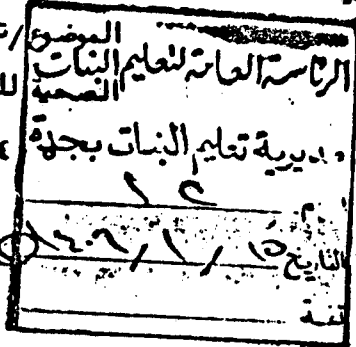 الموضوع /
الرئاسة العامة لتعليم البنات
الصحية
مديرية تعليم البنات بجدة
١٢
التاريخ ١٥ / ١ / ١٤٠٩